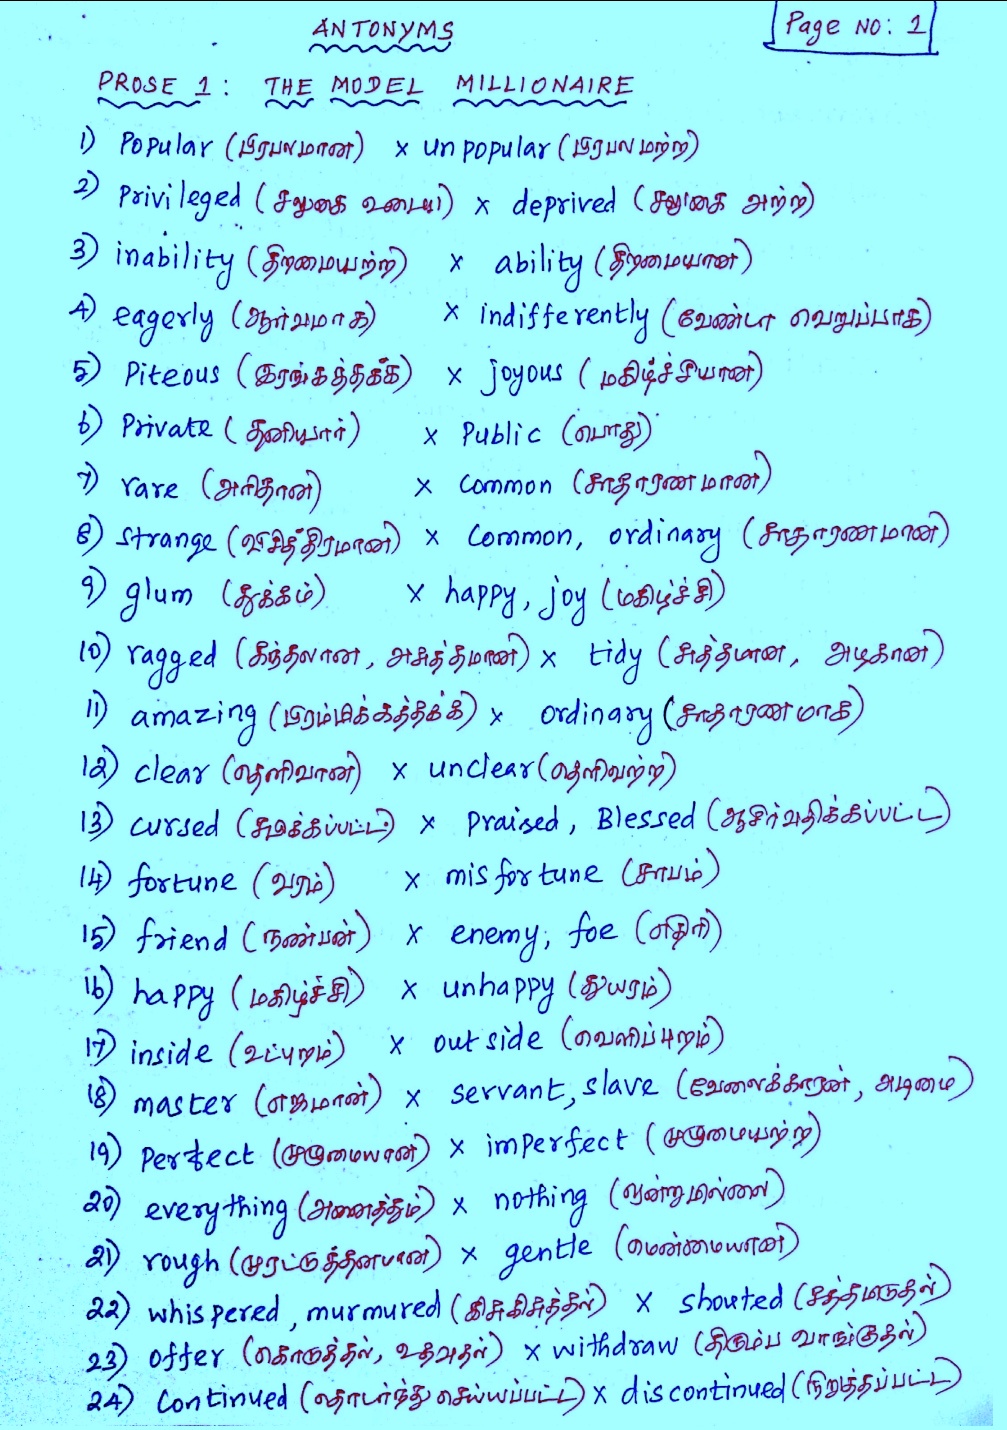 ANTONYMS
Page No: 1
PROSE 1: THE MODEL MILLIONAIRE
1) Popular (பிரபலமான) x unpopular (பிரபலமற்ற)
2) Privileged (சலுகை உடைய) x deprived (சலுகை அற்ற)
3) inability (திறமையற்ற) x ability (திறமையான)
4) eagerly (ஆர்வமாக) x indifferently (வேண்டா வெறுப்பாக)
5) Piteous (இரங்கத்தக்க) x joyous (மகிழ்ச்சியான)
6) Private (தனியார்) x Public (பொது)
7) rare (அரிதான) x common (சாதாரணமான)
8) strange (விசித்திரமான) x common, ordinary (சாதாரணமான)
9) glum (துக்கம்) x happy, joy (மகிழ்ச்சி)
10) ragged (கந்தலான, அசுத்தமான) x tidy (சுத்தமான, அழகான)
11) amazing (பிரம்மிக்கத்தக்க) x ordinary (சாதாரணமாக)
12) clear (தெளிவான) x unclear (தெளிவற்ற)
13) cursed (சபிக்கப்பட்ட) x Praised, Blessed (ஆசிர்வதிக்கப்பட்ட)
14) fortune (வரம்) x misfortune (சாபம்)
15) friend (நண்பன்) x enemy, foe (எதிரி)
16) happy (மகிழ்ச்சி) x unhappy (துயரம்)
17) inside (உட்புறம்) x outside (வெளிப்புறம்)
18) master (எஜமான்) x servant, slave (வேலைக்காரன், அடிமை)
19) Perfect (முழுமையான) x imperfect (முழுமையற்ற)
20) everything (அனைத்தும்) x nothing (ஒன்றுமில்லை)
21) rough (முரட்டுத்தனமான) x gentle (மென்மையான)
22) whispered, murmured (கிசுகிசுத்தல்) x shouted (சத்தமிடுதல்)
23) offer (கொடுத்தல், உதவுதல்) x withdraw (திரும்ப வாங்குதல்)
24) Continued (தொடர்ந்து செய்யப்பட்ட) x discontinued (நிறுத்தப்பட்ட)